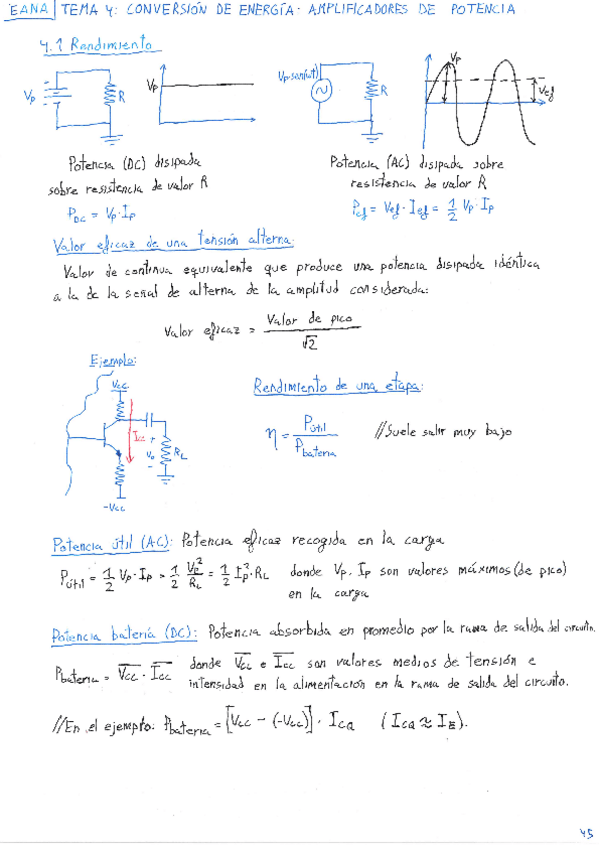 EANA TEMA 4: CONVERSIÓN DE ENERGÍA. AMPLIFICADORES DE POTENCIA
4.1 Rendimiento
Vp R Vp Vp·sen(ωt) R Vp Vef
Potencia (DC) disipada
sobre resistencia de valor R
P_DC = Vp·Ip
Potencia (AC) disipada sobre
resistencia de valor R
Pef = Vef·Ief = 1/2 Vp·Ip
Valor eficaz de una tensión alterna:
Valor de continua equivalente que produce una potencia disipada idéntica
a la de la señal de alterna de la amplitud considerada:
Valor eficaz = Valor de pico / √2
Ejemplo:
Vcc
Icc + Vo - RL
-Vcc
Rendimiento de una etapa:
η = Pútil / Pbatería //Suele salir muy bajo
Potencia útil (AC): Potencia eficaz recogida en la carga
Pútil = 1/2 Vp·Ip = 1/2 Vp²/RL = 1/2 Ip²·RL donde Vp, Ip son valores máximos (de pico)
en la carga
Potencia batería (DC): Potencia absorbida en promedio por la rama de salida del circuito.
Pbatería = V̅c̅c̅ · I̅c̅c̅ donde V̅c̅c̅ e I̅c̅c̅ son valores medios de tensión e
intensidad en la alimentación en la rama de salida del circuito.
//En el ejemplo: Pbatería = [Vcc - (-Vcc)] · ICQ (ICQ ≈ IE).
45